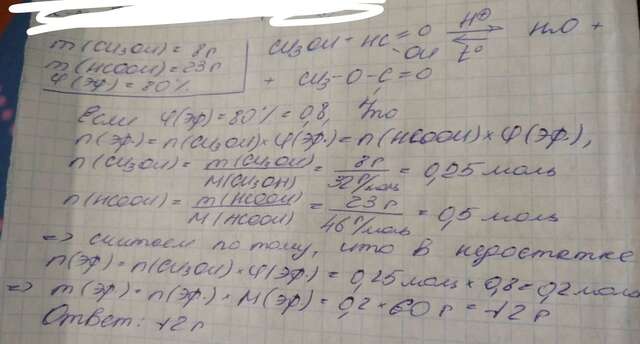 m(CH3OH) = 8г
m(HCOOH) = 23г
φ(эф) = 80%
CH3OH + HC=O -OH H⊕ ⇄ t° H2O +
+ CH3-O-C=O
Если φ(эф) = 80% = 0,8, то
n(эф.) = n(CH3OH) × φ(эф.) = n(HCOOH) × φ(эф.),
n(CH3OH) = m(CH3OH) / M(CH3OH) = 8г / 32г/моль = 0,25 моль
n(HCOOH) = m(HCOOH) / M(HCOOH) = 23г / 46г/моль = 0,5 моль
=> считаем по тому, что в недостатке
n(эф) = n(CH3OH) × φ(эф) = 0,25моль × 0,8 = 0,2 моль
=> m(эф) = n(эф.) × M(эф) = 0,2 × 60 г = 12 г
Ответ: 12 г